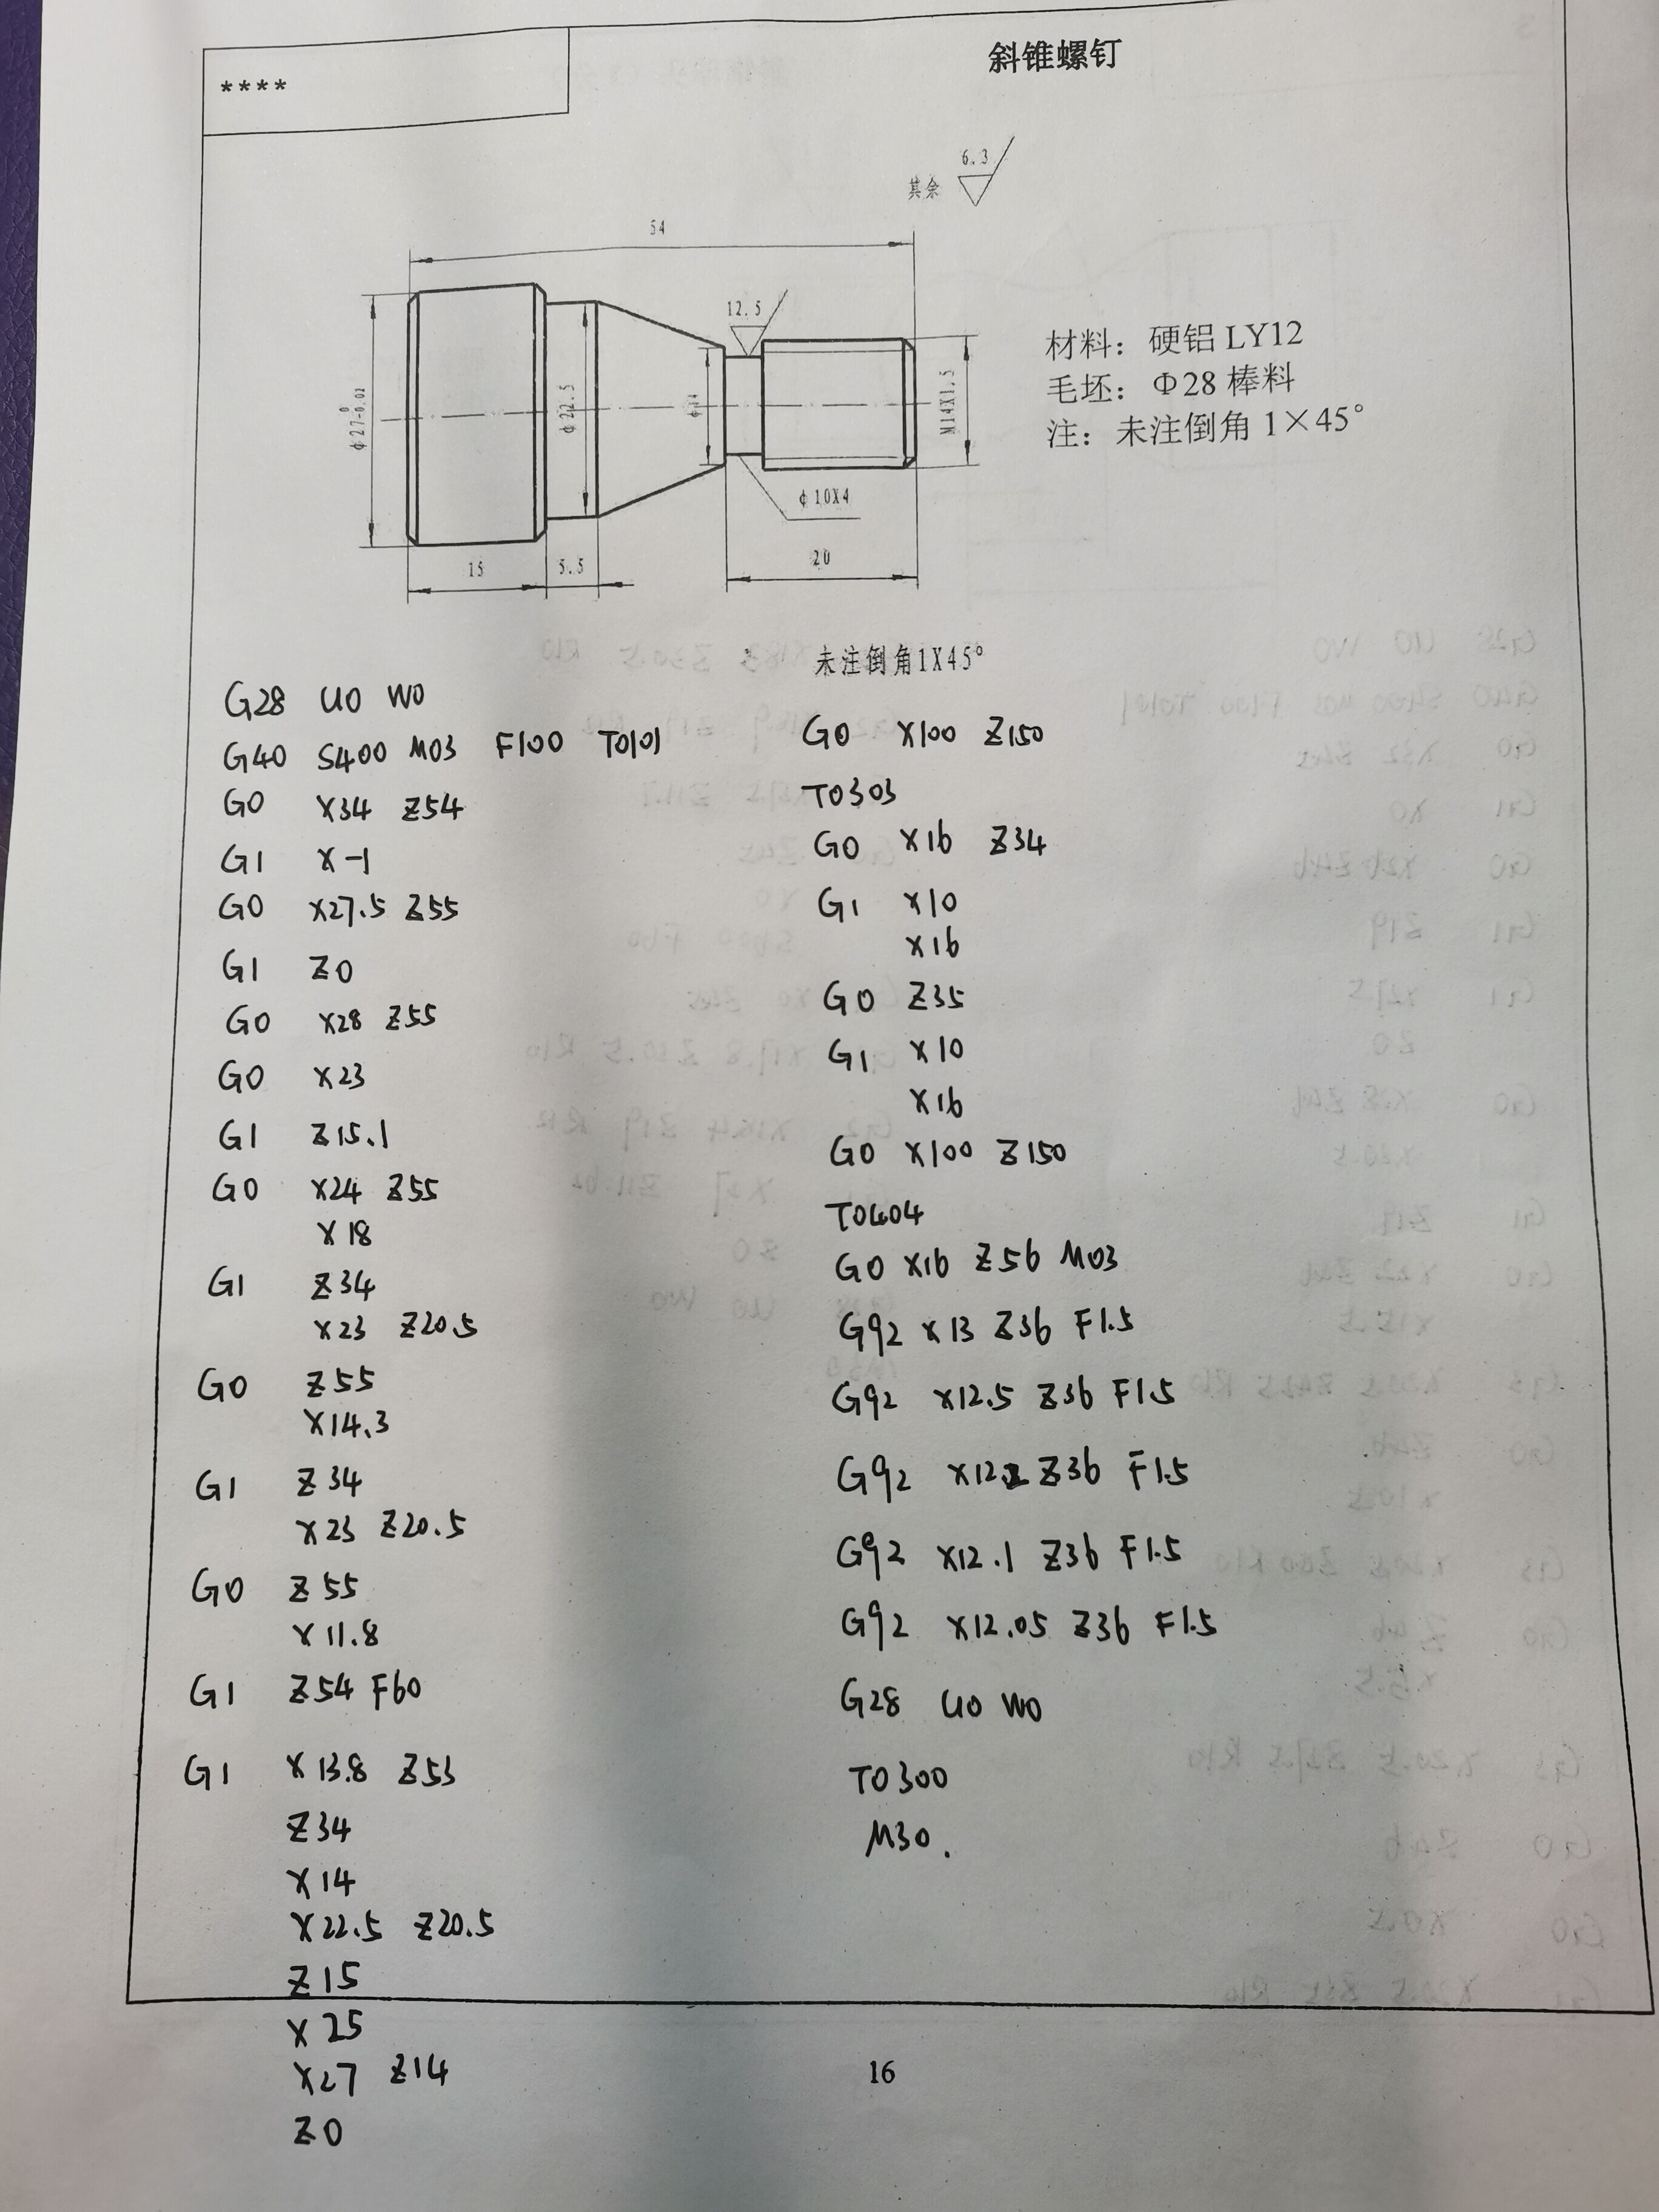 ****
斜锥螺钉
其余 6.3
54
12.5
φ27-0.02 0
φ22.5
φ14
M14X1.5
材料：硬铝 LY12
毛坯：Φ28 棒料
注：未注倒角 1×45°
φ10X4
15
5.5
20
未注倒角1X45°
G28 U0 W0
G40 S400 M03 F100 T0101
G0 X34 Z54
G1 X-1
G0 X27.5 Z55
G1 Z0
G0 X28 Z55
G0 X23
G1 Z15.1
G0 X24 Z55
X18
G1 Z34
X23 Z20.5
G0 Z55
X14.3
G1 Z34
X23 Z20.5
G0 Z55
X11.8
G1 Z54 F60
G1 X13.8 Z53
Z34
X14
X22.5 Z20.5
Z15
X25
X27 Z14
Z0
G0 X100 Z150
T0303
G0 X16 Z34
G1 X10
X16
G0 Z35
G1 X10
X16
G0 X100 Z150
T0404
G0 X16 Z56 M03
G92 X13 Z36 F1.5
G92 X12.5 Z36 F1.5
G92 X12.2 Z36 F1.5
G92 X12.1 Z36 F1.5
G92 X12.05 Z36 F1.5
G28 U0 W0
T0300
M30.
16